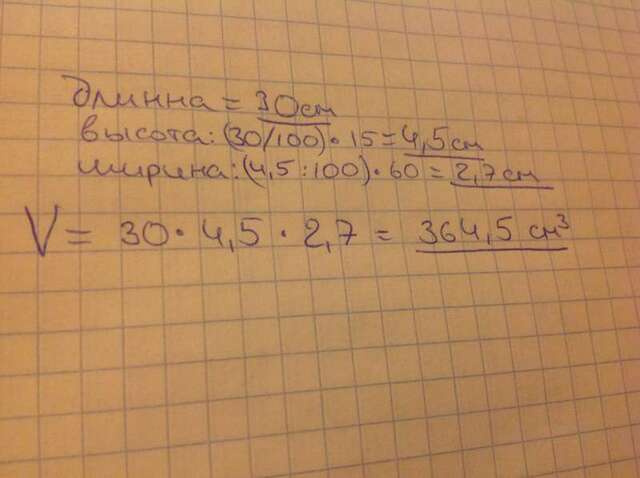 длинна = 30см
высота: (30/100)•15=4,5см
ширина: (4,5:100)•60=2,7см
V= 30•4,5•2,7= 364,5 см³